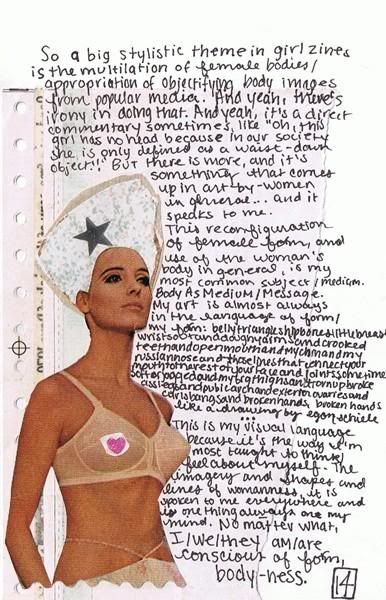 So a big stylistic theme in girl zines
is the mutilation of female bodies/
appropriation of objectifying body images
from popular media. And yeah, there's
irony in doing that. And yeah, it's a direct
commentary sometimes, like "oh, this
girl has no head because in our society
she is only defined as a waist-down
object!" BUT there is more, and it's
something that comes
up in art-by-women
in general... and it
speaks to me.
This reconfiguration
of female form, and
use of the woman's
body in general, is my
most common subject/medium.
Body As Medium/Message.
My art is almost always
in the language of form/
my form: bellytriangleshipboneslittlebreasts
and crooked
teethandopenmouthandmychinandmy
russiannoseandthoselinesthatconnectyour
mouthtotherestofyourfaceandjointssometimes
andmybigthighsandtornupbroke
andpubicarchandexteriorovariesand
curlsbangsandbrokenhands, broken hands
like a drawing by egon schiele
This is my visual language
because it's the way I'm
most taught to think/
feel about myself. The
imagery and shapes and
lines of womanness, it is
spoken to me everywhere and
is one thing always on my
mind. No matter what,
I/we/they am/are
conscious of form,
body-ness.
14